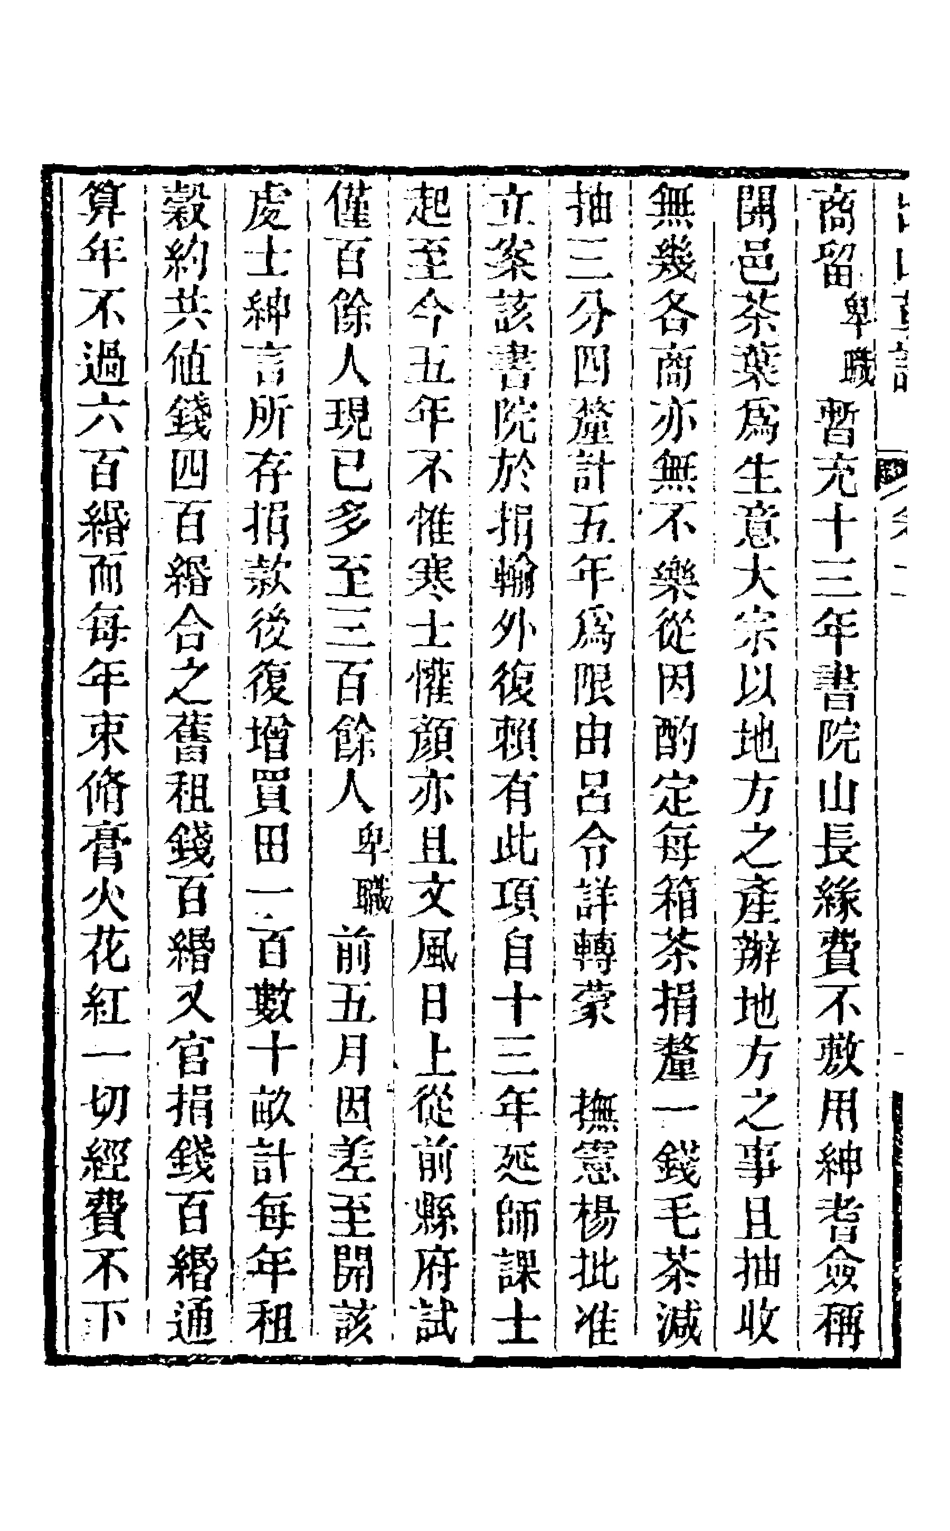 商留卑職暫充十三年書院山長緣費不敷用紳耆僉稱
開邑茶葉爲生意大宗以地方之產辦地方之事且抽收
無幾各商亦無不樂從因酌定每箱茶捐釐一錢毛茶減
抽三分四釐計五年爲限由呂令詳轉蒙　撫憲楊批准
立案該書院於捐輸外復賴有此項自十三年延師課士
起至今五年不惟寒士懽顏亦且文風日上從前縣府試
僅百餘人現已多至三百餘人卑職前五月因差至開該
處士紳言所存捐款後復增買田一百數十畝計每年租
穀約共值錢四百緡合之舊租錢百緡又官捐錢百緡通
算年不過六百緡而每年束脩膏火花紅一切經費不下